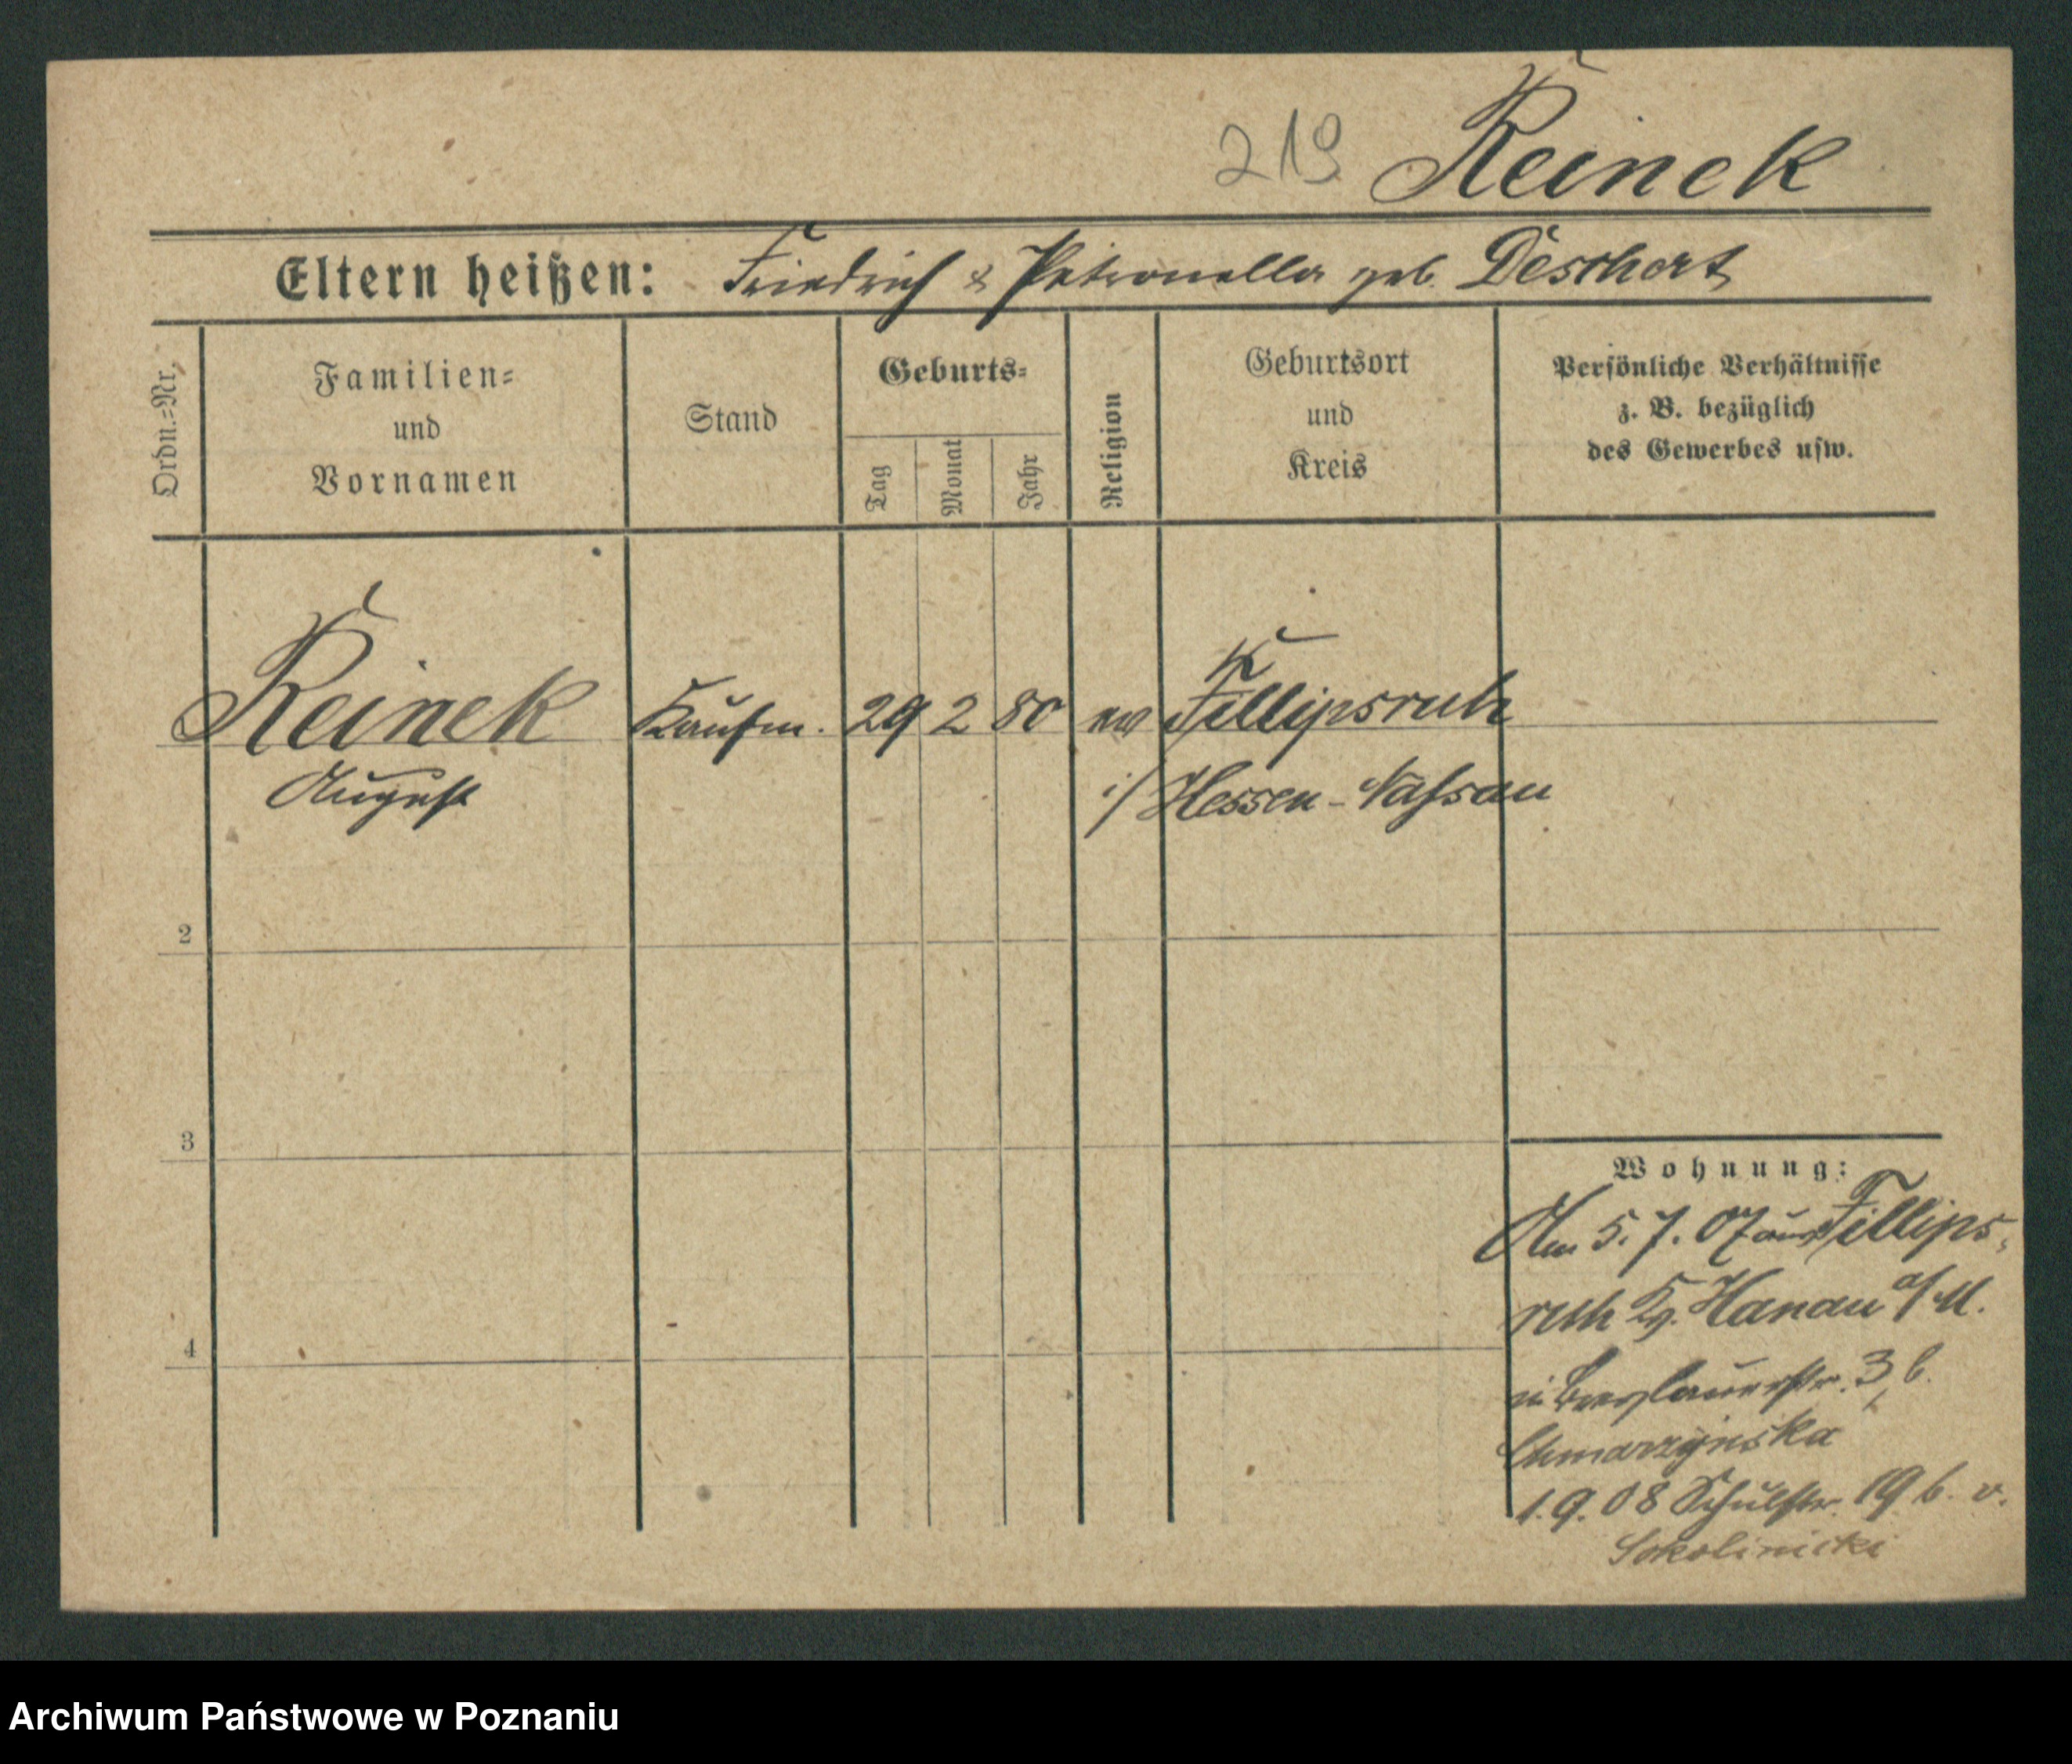 219. Reinek
Eltern heißen: Friedrich & Petronella geb. Deschert
Ordn.=Nr.
Familien= und Vornamen
Stand
Geburts=
Tag
Monat
Jahr
Religion
Geburtsort und Kreis
Persönliche Verhältnisse z. B. bezüglich des Gewerbes usw.
Reinek Kaufm. 29 2 80 ev Fillipsruh
August i/ Hessen-Nassau
2
3
4
Wohnung:
Am 5. 7. 07 aus Fillips-
ruh Kr. Hanau a/M.
in Breslauerstr. 3, b.
Chmarzynska
1. 9. 08 Schulstr. 19 b. v.
Sokolinicki
Archiwum Państwowe w Poznaniu